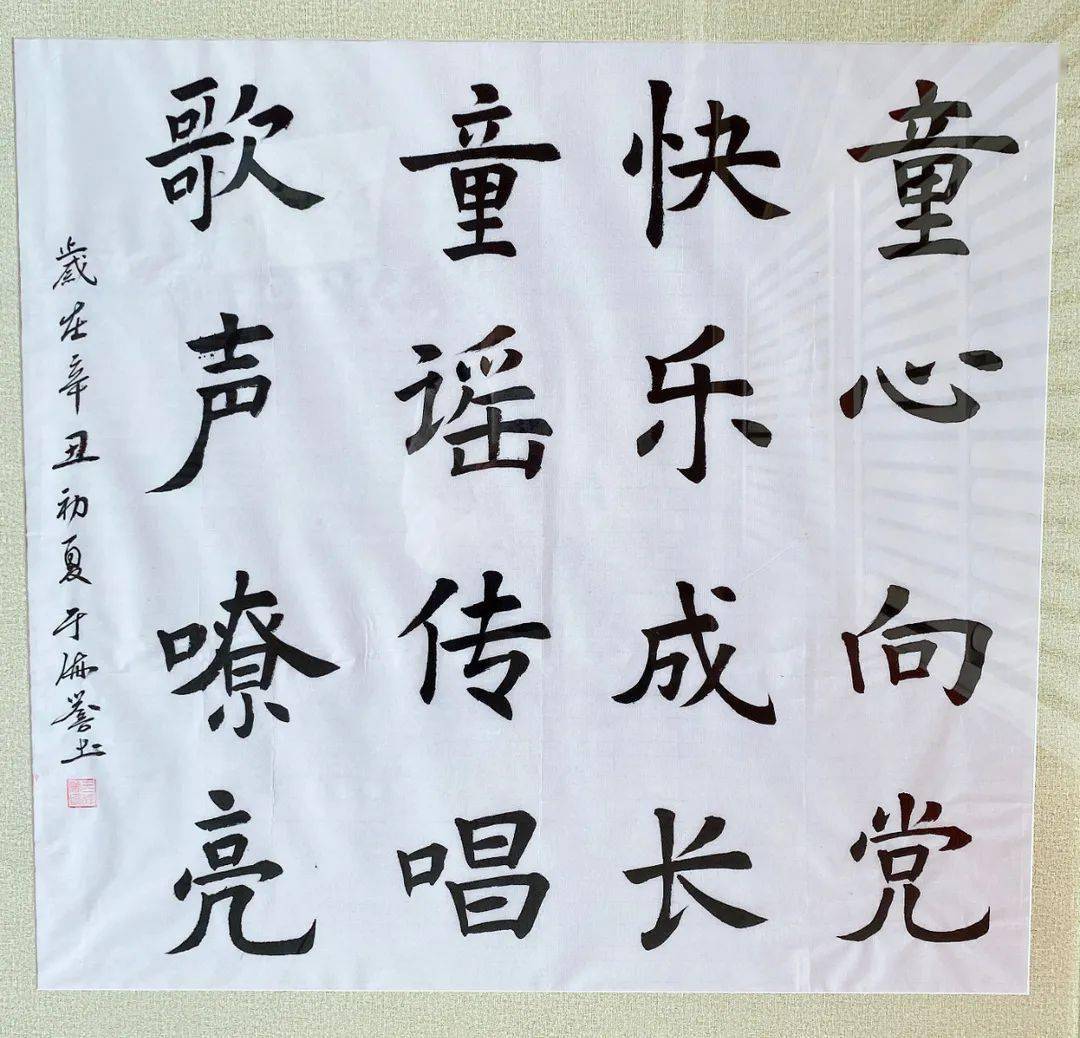 童心向党
快乐成长
童谣传唱
歌声嘹亮
歲在辛丑初夏于海誉书